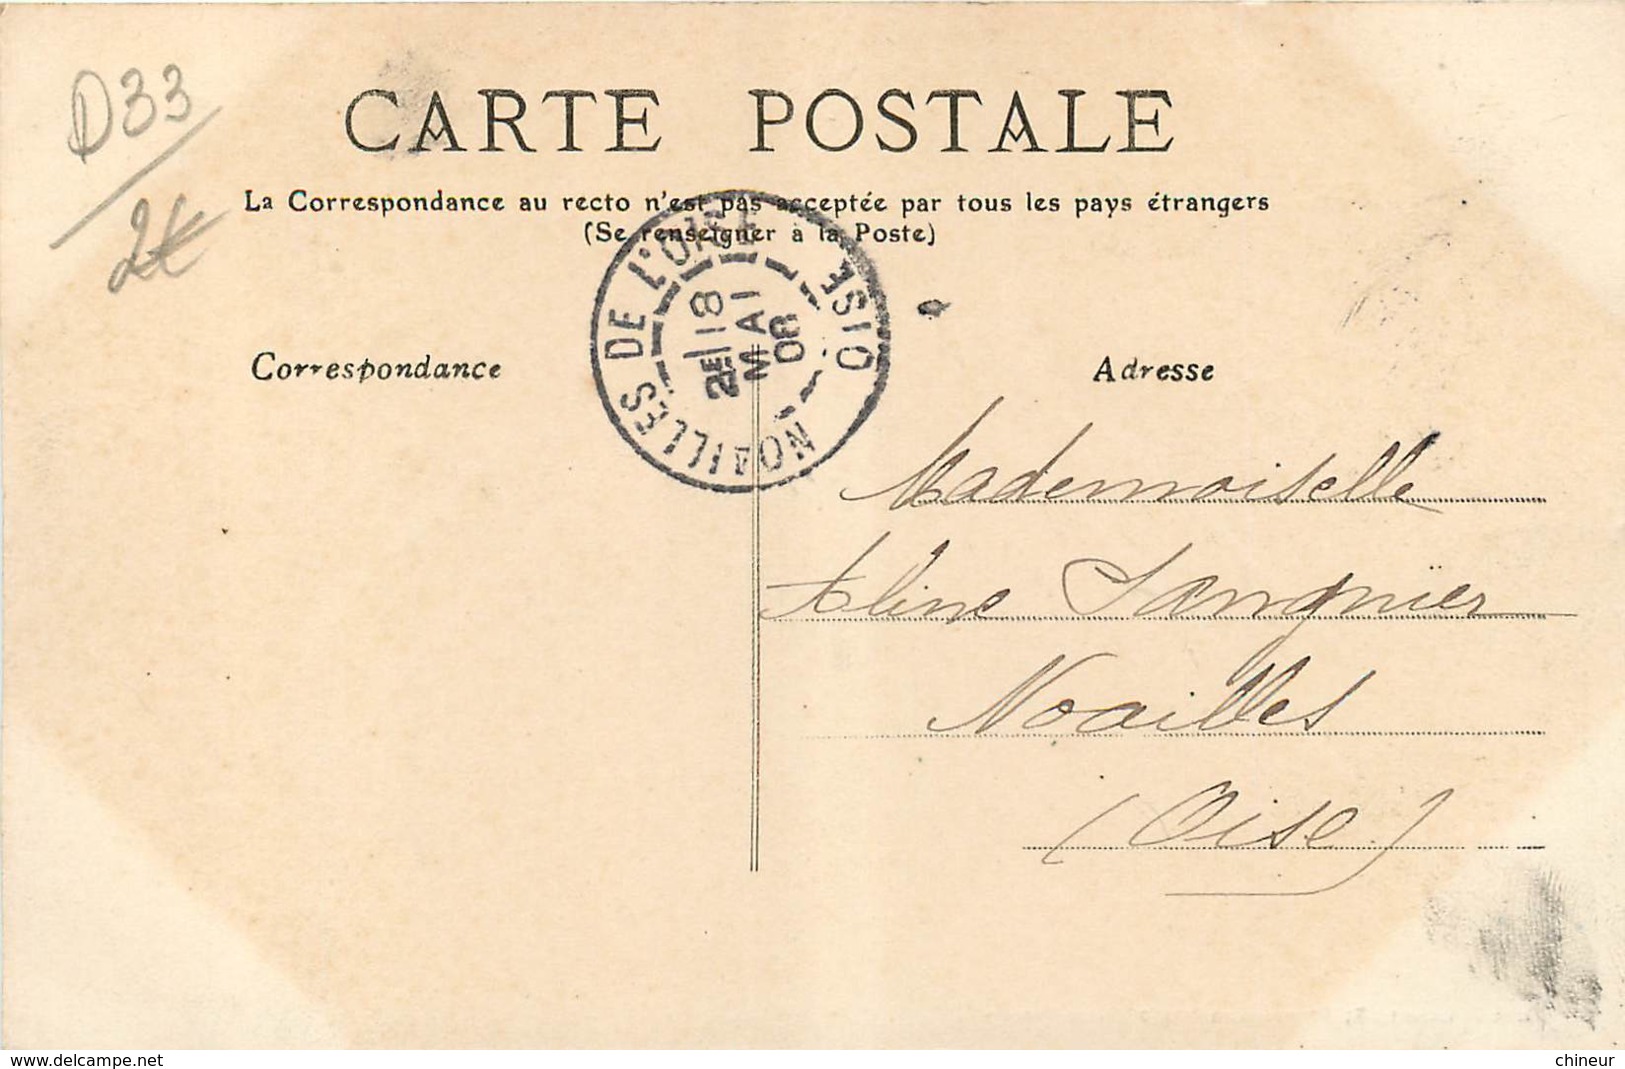 D33
2€
CARTE POSTALE
La Correspondance au recto n'est pas acceptée par tous les pays étrangers
(Se renseigner à la Poste)
NOAILLES DE L'OISE OISE
2E 18
MAI
08
Correspondance
Adresse
Mademoiselle
Aline Sangnier
Noailles
(Oise)
www.delcampe.net
chineur